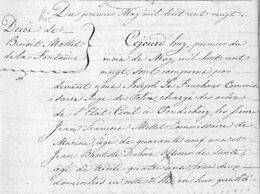 Du premier May mil huit cent vingt
Décès de
Benoit Mottet
de la Fontaine
Cejourd'huy, premier du
mois de May, mil huit cent
vingt, sont comparus par
devant nous Joseph Le Faucheur Commis
saire Juge de Police chargé des actes de
l'Etat Civil à Pondichéry les sieurs
Jean François Mottet Commissaire de
Marine, agé de quarante neuf ans, et
Jean Baptiste Officier de santé
agé de quatre ans, tous deux
domiciliés en cette Ville, en leur qualité